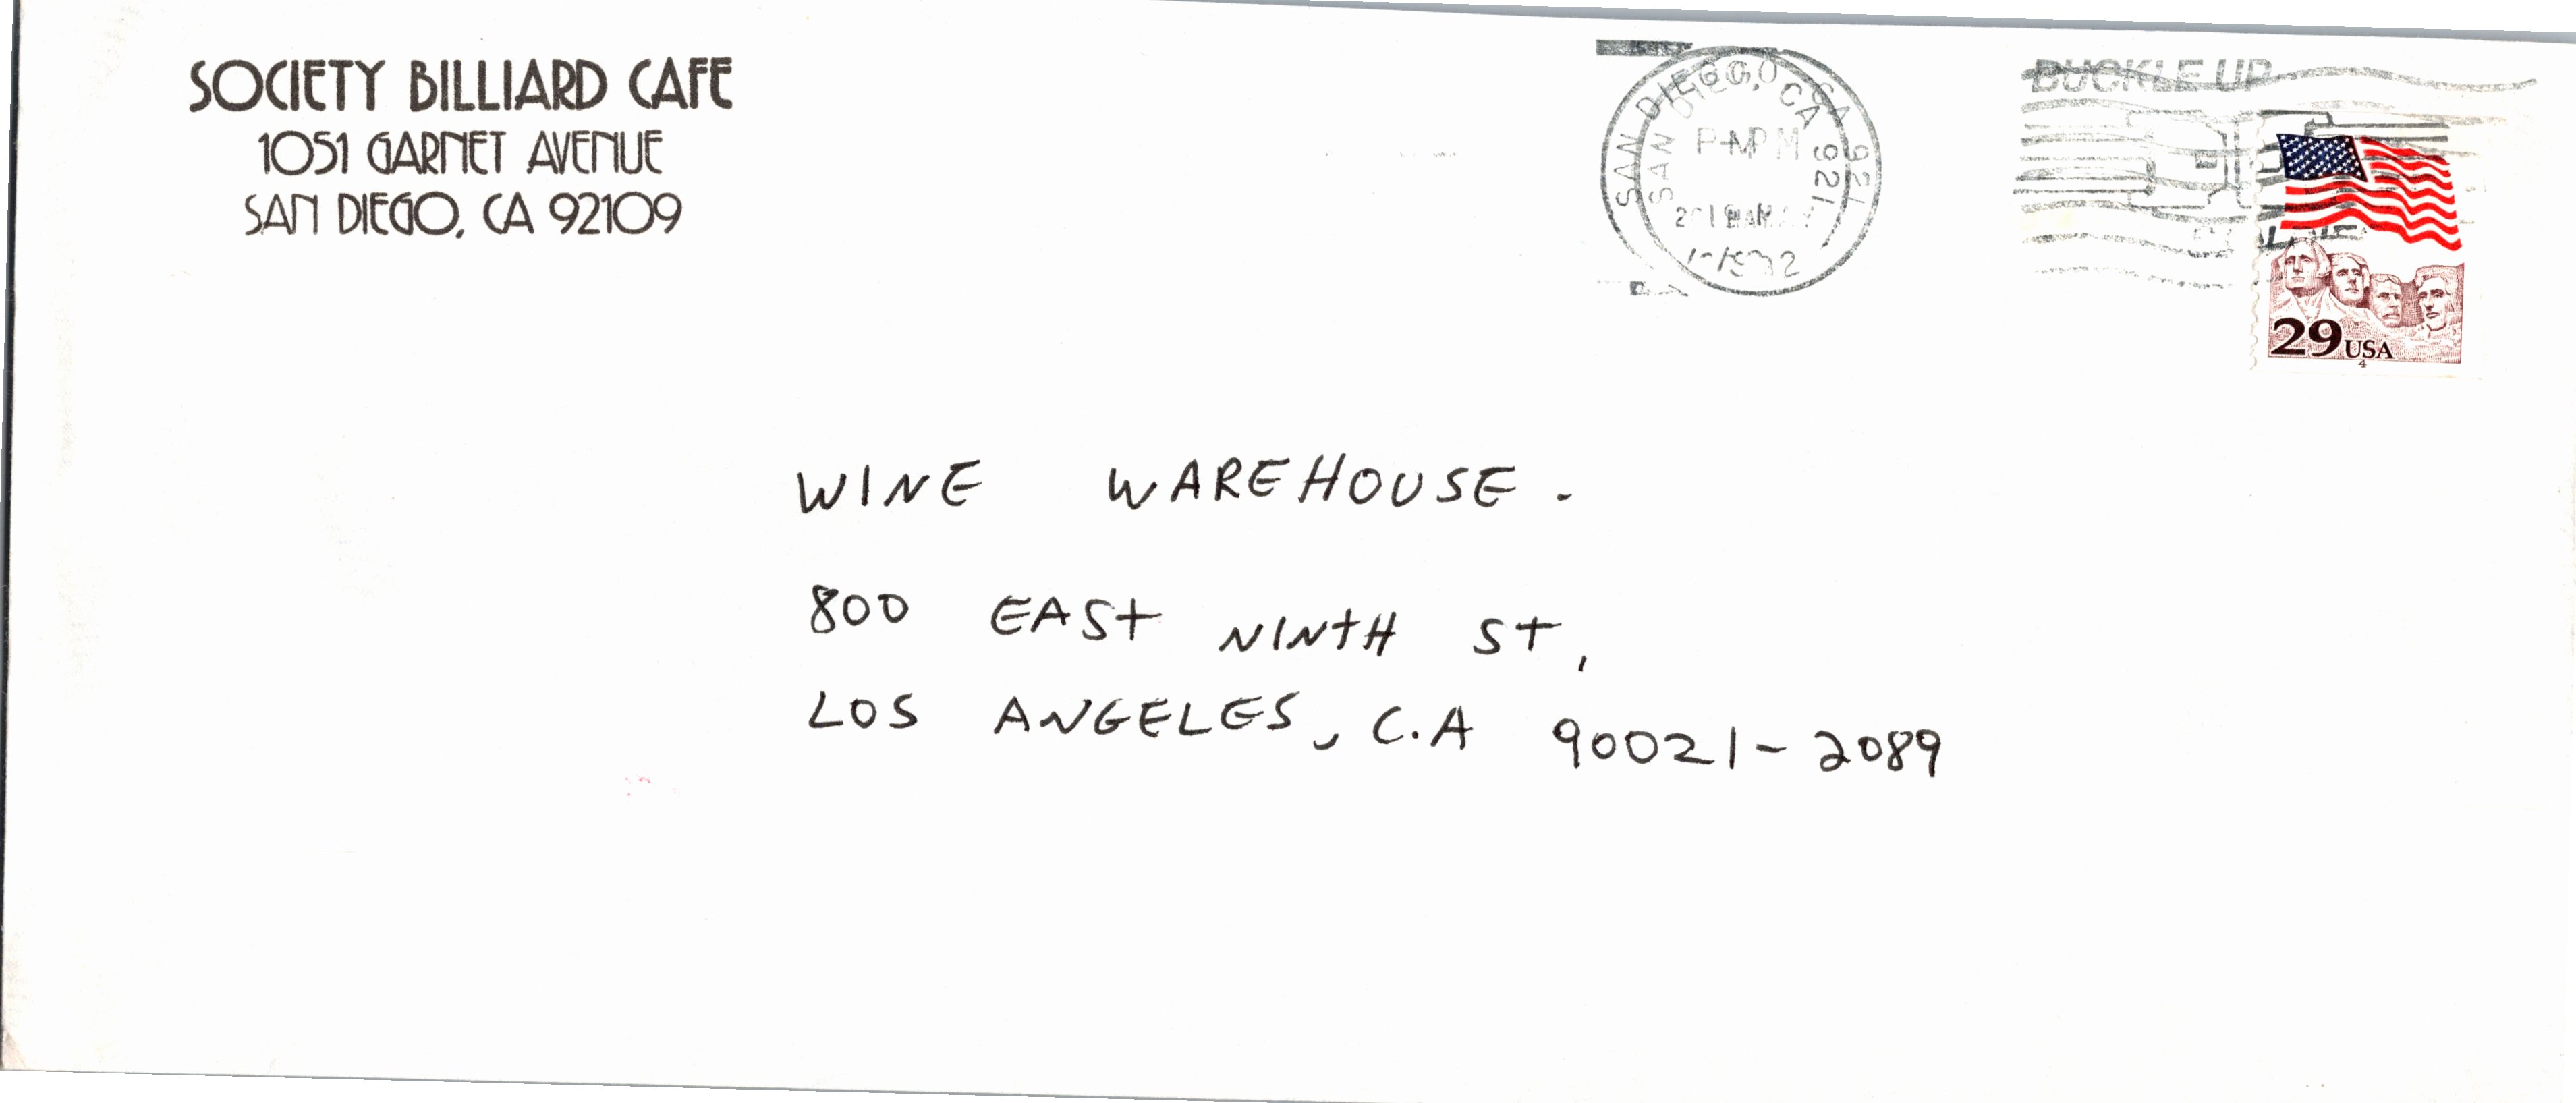 SOCIETY BILLIARD CAFE
1051 GARNET AVENUE
SAN DIEGO, CA 92109
SAN DIEGO, CA 921
SAN DIEGO, CA 921
PM PM
1992
BUCKLE UP
29 USA
4
WINE WAREHOUSE.
800 EAST NINTH ST,
LOS ANGELES, C.A 90021-2089